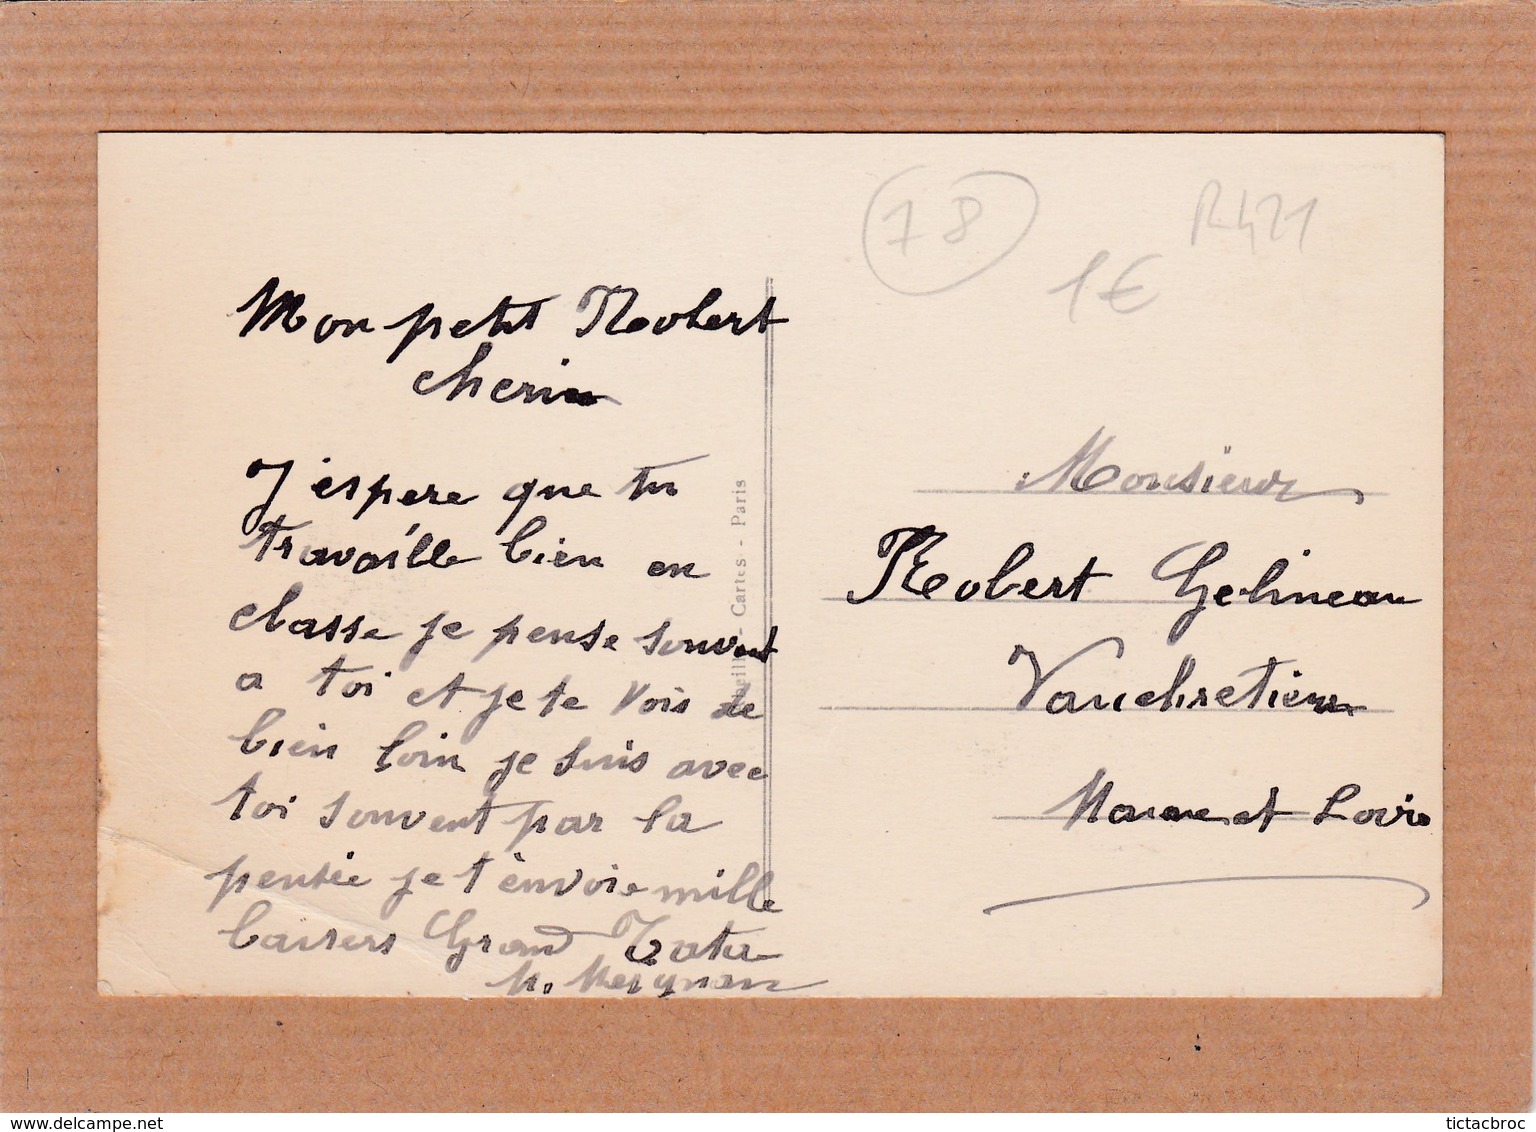 Mon petit Robert
cheri
J'espere que tu
travaille bien en
classe je pense souvent
a toi et je te vois de
bien loin je suis avec
toi souvent par la
pensée je t'envoie mille
baisers Grand Tata
M. Mergnan
Cartes - Paris
78
R421
1€
Monsieur
Robert Gelineau
Vauchretien
Maine et Loire
delcampe.net
tictacbroc